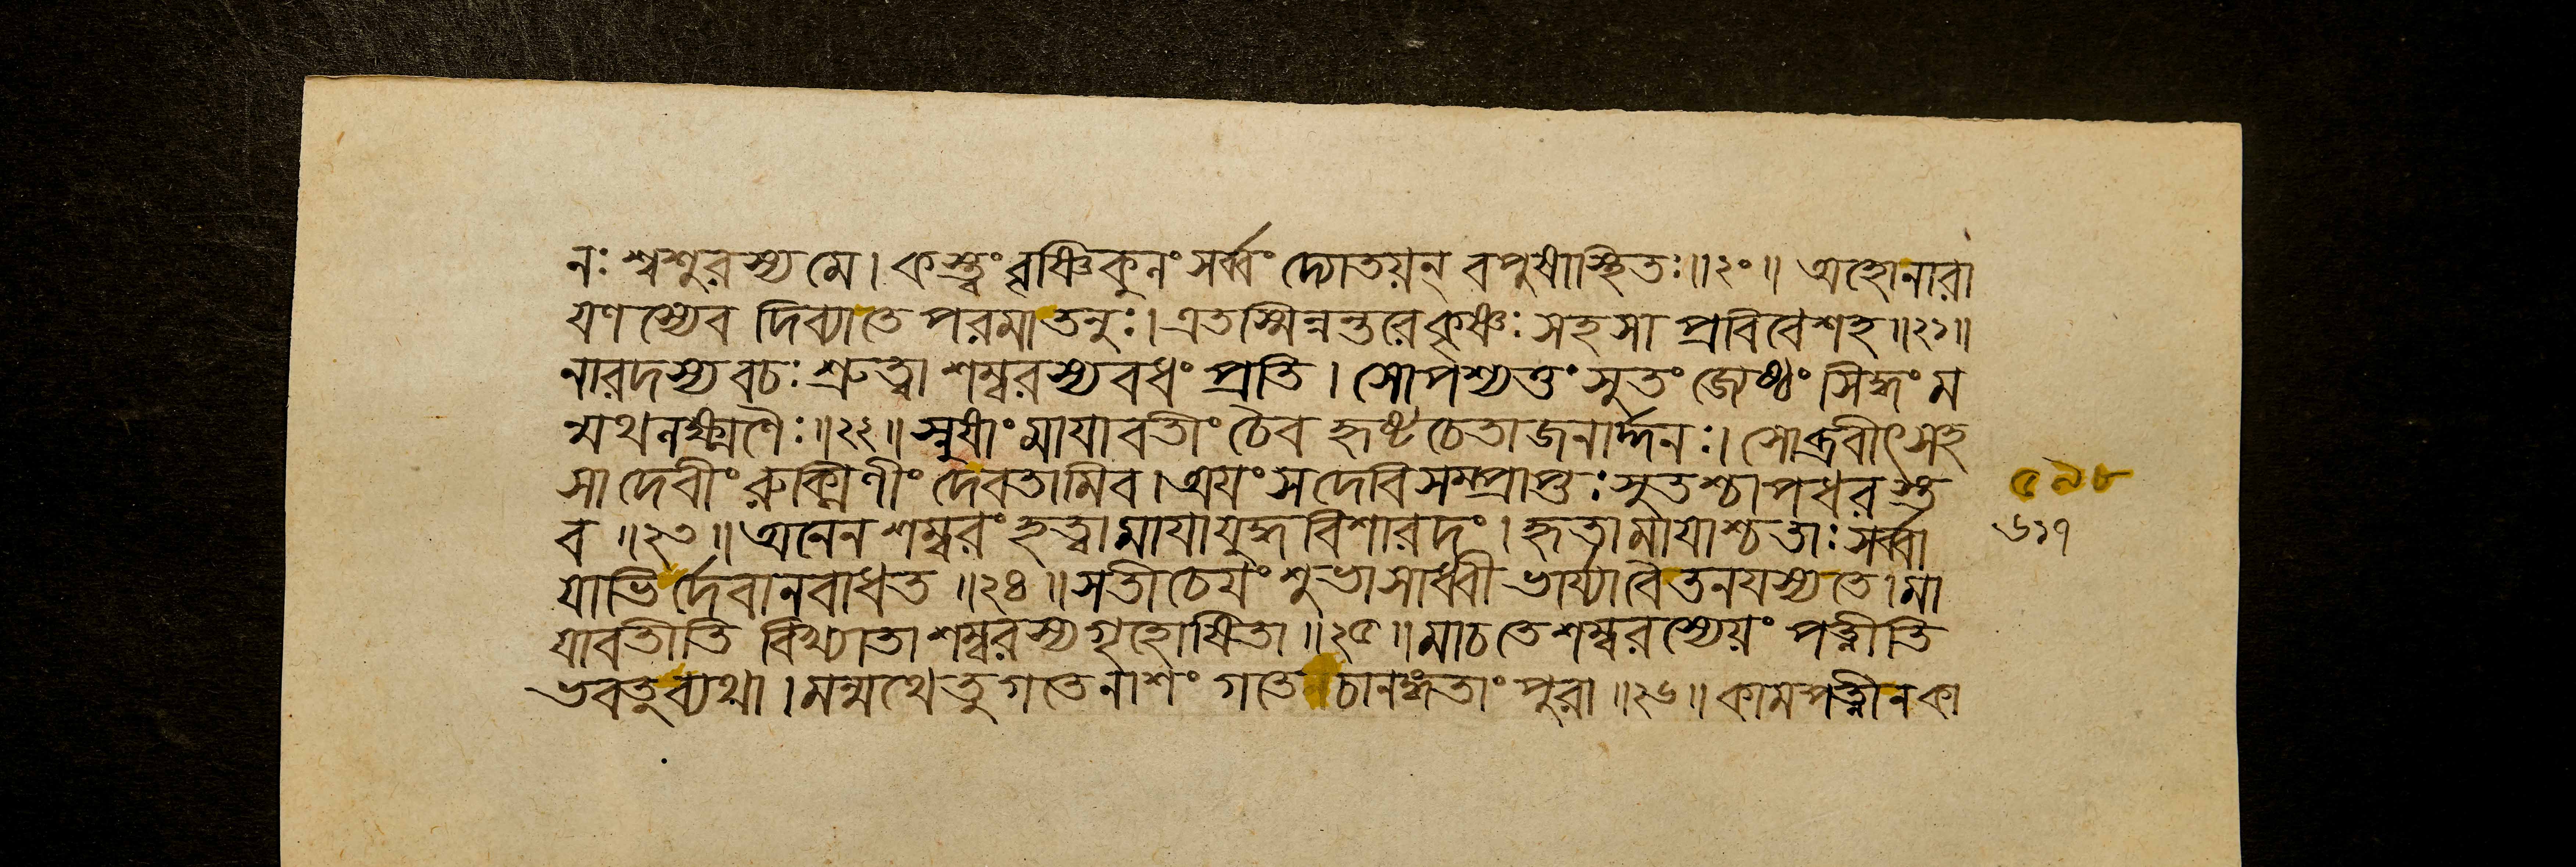 নঃ শ্বশুরস্য মে । কস্ত্বং বৃষ্ণিকুলং সর্ব্বং দ্যোতয়ন্ বপুষাস্থিতঃ ॥ ২০ ॥ অহো নারা
যণস্যেব দিব্যা তে পরমা তনুঃ । এতস্মিন্নন্তরে কৃষ্ণঃ সহসা প্রবিবেশ হ ॥ ২১ ॥
নারদস্য বচঃ শ্রুত্বা শম্বরস্য বধং প্রতি । সোপশ্যত্তং সুতং জ্যেষ্ঠং সিদ্ধং ম
ন্মথলক্ষণৈঃ ॥ ২২ ॥ স্নুষাং মাযাবতীং চৈব হৃষ্টচেতা জনার্দ্দনঃ । সোব্রবীৎ সহ
সা দেবীং রুক্মিণীং দেবতামিব । অযং স দেবি সম্প্রাপ্তঃ সুতশ্চাপধরস্ত
ব ॥ ২৩ ॥ অনেন শম্বরং হত্বা মাযাযুদ্ধবিশারদং । হৃতা মাযাশ্চ তাঃ সর্ব্বা
যাভির্দেবানবাধত ॥ ২৪ ॥ সতী চেযং শুভা সাধ্বী ভার্য্যা বৈ তনযস্য তে । মা
যাবতীতি বিখ্যাতা শম্বরস্য গৃহোষিতা ॥ ২৫ ॥ মা চ তে শম্বরস্যেয়ং পত্নীতি
ভবতু ব্যথা । মন্মথে তু গতে নাশং গতে চানঙ্গতাং পুরা ॥ ২৬ ॥ কামপত্নী ন কা
৫৯৮
৬১৭